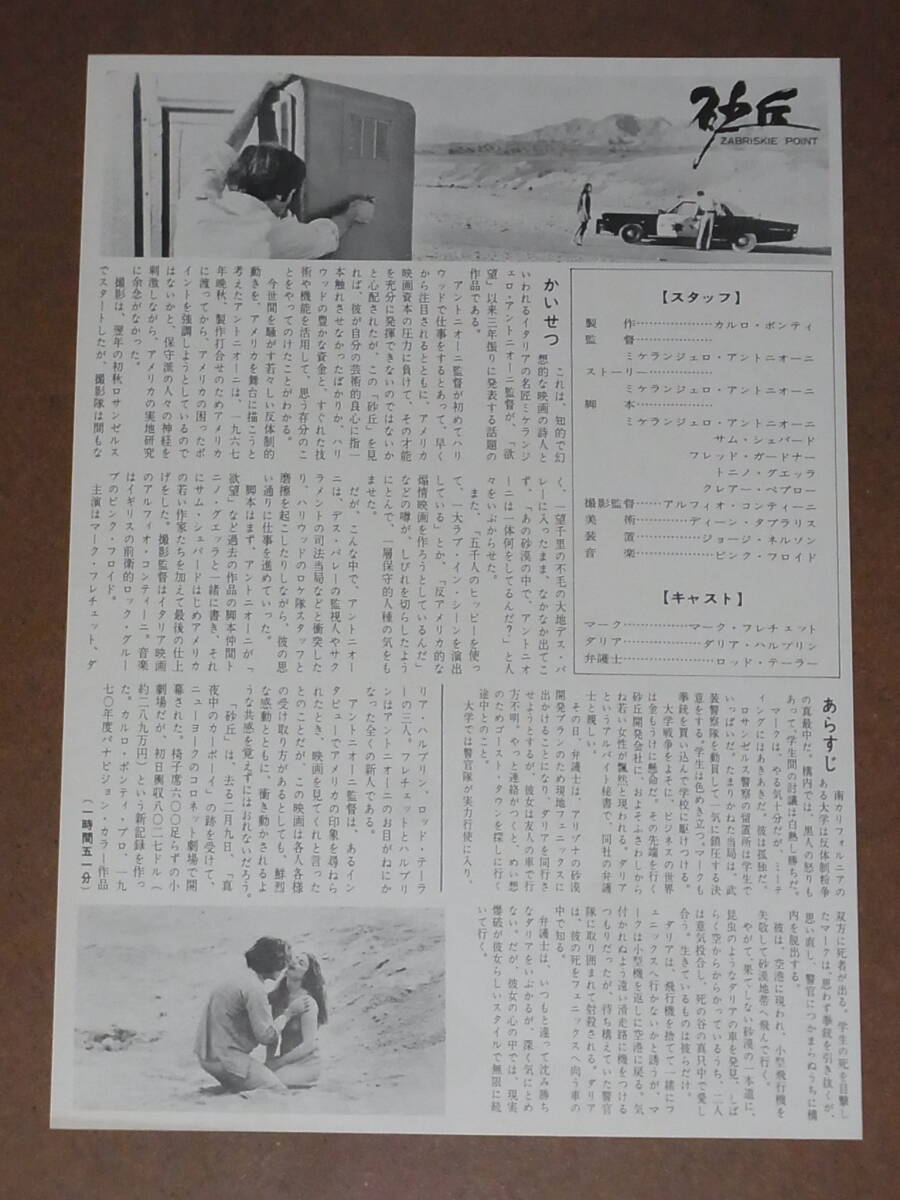 砂丘
ZABRISKIE POINT
【スタッフ】
製　作……………カルロ・ポンティ
監　督……………
ミケランジェロ・アントニオーニ
ストーリー……………
ミケランジェロ・アントニオーニ
脚　本……………
ミケランジェロ・アントニオーニ
サム・シェパード
フレッド・ガードナー
トニノ・グエッラ
クレアー・ペプロー
撮影監督……アルフィオ・コンティーニ
美　術………ディーン・タブラリス
装　置…………ジョージ・ネルソン
音　楽……………ピンク・フロイド
【キャスト】
マーク…………マーク・フレチェット
ダリア……………ダリア・ハルプリン
弁護士……………ロッド・テーラー
かいせつ
これは、知的で幻
想的な映画の詩人と
いわれるイタリアの名匠ミケランジ
ェロ・アントニオーニ監督が、「欲
望」以来三年振りに発表する話題の
作品である。
アントニオーニ監督が初めてハリ
ウッドで仕事をするとあって、早く
から注目されるとともに、アメリカ
映画資本の圧力に負けて、その才能
を充分に発揮できないのではないか
と心配されたが、この「砂丘」を見
れば、彼が自分の芸術的良心に指一
本触れさせなかったばかりか、ハリ
ウッドの豊かな資金と、すぐれた技
術や機能を活用して、思う存分のこ
とをやってのけたことがわかる。
今世間を騒がす若々しい反体制的
動きを、アメリカを舞台に描こうと
考えたアントニオーニは、一九六七
年晩秋、製作打合せのためアメリカ
に渡ってから、アメリカの困ったポ
イントを強調しようとしているので
はないかと、保守派の人々の神経を
刺激しながら、アメリカの実地研究
に余念がなかった。
撮影は、翌年の初秋ロサンゼルス
でスタートしたが、撮影隊は間もな
く、一望千里の不毛の大地デス・バ
レーに入ったまま、なかなか出てこ
ず、「あの砂漠の中で、アントニオ
ーニは一体何をしてるんだ？」と人
々をいぶからせた。
また、「五千人のヒッピーを使っ
て、一大ラブ・イン・シーンを演出
している」とか、「反アメリカ的な
煽情映画を作ろうとしているんだ」
などの噂が、しびれを切らしたよう
にとんで、一層保守的人種の気をも
ませた。
だが、こんな中で、アントニオー
ニは、デス・バレーの監視人やサク
ラメントの司法当局などと衝突した
り、ハリウッドのロケ隊スタッフと
磨擦を起こしたりしながら、彼の思
い通りに仕事を進めていった。
脚本はまず、アントニオーニが「
欲望」など過去の作品の脚本仲間ト
ニノ・グエッラと一緒に書き、それ
にサム・シェパードはじめアメリカ
の若い作家たちを加えて最後の仕上
げをした。撮影監督はイタリア映画
のアルフィオ・コンティーニ。音楽
はイギリスの前衛的ロック・グルー
プのピンク・フロイド。
主演はマーク・フレチェット、ダ
リア・ハルプリン、ロッド・テーラ
ーの三人。フレチェットとハルプリ
ンはアントニオーニのお目がねにか
なった全くの新人である。
アントニオーニ監督は、あるイン
タビューでアメリカの印象を尋ねら
れたとき、映画を見てくれと言った
とのことだが、この映画は各人各様
の受け取り方があるとしても、鮮烈
な感動とともに、衝き動かされるよ
うな共感を覚えずにはおれないだろう。
「砂丘」は、去る二月九日、「真
夜中のカーボーイ」の跡を受けて、
ニューヨークのコロネット劇場で開
幕された。椅子席六〇〇足らずの小
劇場だが、初日興収八〇二七ドル（
約二八九万円）という新記録を作っ
た。カルロ・ポンティ・プロ、一九
七〇年度パナビジョン・カラー作品
（一時間五一分）
あらすじ
南カリフォルニアの
ある大学は反体制紛争
の真最中だ。構内では、黒人の怒りも
あって、学生間の討議は白熱し勝ちだ。
マークは、やる気十分だが、ミーテ
ィングにはあきあきだ。彼は孤独だ。
ロサンゼルス警察の留置所は学生で
いっぱいだ。たまりかねた当局は、武
装警察隊を動員して一気に鎮圧する決
意をする。学生は色めき立つ。マークも
拳銃を買い込んで学校に駆けつける。
大学戦争をよそに、ビジネスの世界
は金もうけに懸命だ。その先端を行く
砂丘開発会社に、およそふさわしから
ぬ若い女性が飄然と現われる。ダリア
というアルバイト秘書で、同社の弁護
士と親しい。
その日、弁護士は、アリゾナの砂漠
開発プランのため現地フェニックスに
出かけることになり、ダリアを同行さ
せようとするが、彼女は友人の車で行
方不明。やっと連絡がつくと、めい想
のためゴースト・タウンを探しに行く
途中とのこと。
大学では警官隊が実力行使に入り、
双方に死者が出る。学生の死を目撃し
たマークは、思わず拳銃を引き抜くが、
思い直し、警官につかまらぬうちに構
内を脱出する。
彼は、空港に現われ、小型飛行機を
失敬して砂漠地帯へ飛んで行く。
やがて、果てしない砂漠の一本道に、
昆虫のようなダリアの車を発見、しば
らく空からからかっているうち、二人
は意気投合し、死の谷の真只中で愛し
合う。生きているものは彼らだけ。
ダリアは、飛行機を捨てて一緒にフ
ェニックスへ行かないかと誘うが、マ
ークは小型機を返しに空港に戻る。気
付かれぬよう遠い滑走路に機をつける
つもりだったが、待ち構えていた警官
隊に取り囲まれて射殺される。ダリア
は、彼の死をフェニックスへ向う車の
中で知る。
弁護士は、いつもと違って沈み勝ち
なダリアをいぶかるが、深く気にとめ
ない。だが、彼女の心の中では、現実
爆破が彼女らしいスタイルで無限に続
いて行く。